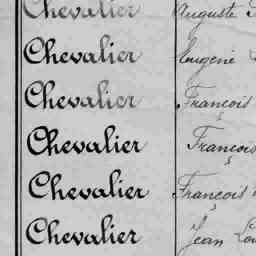 Chevalier Auguste
Chevalier Eugène
Chevalier François
Chevalier François
Chevalier François
Chevalier Jean Lou